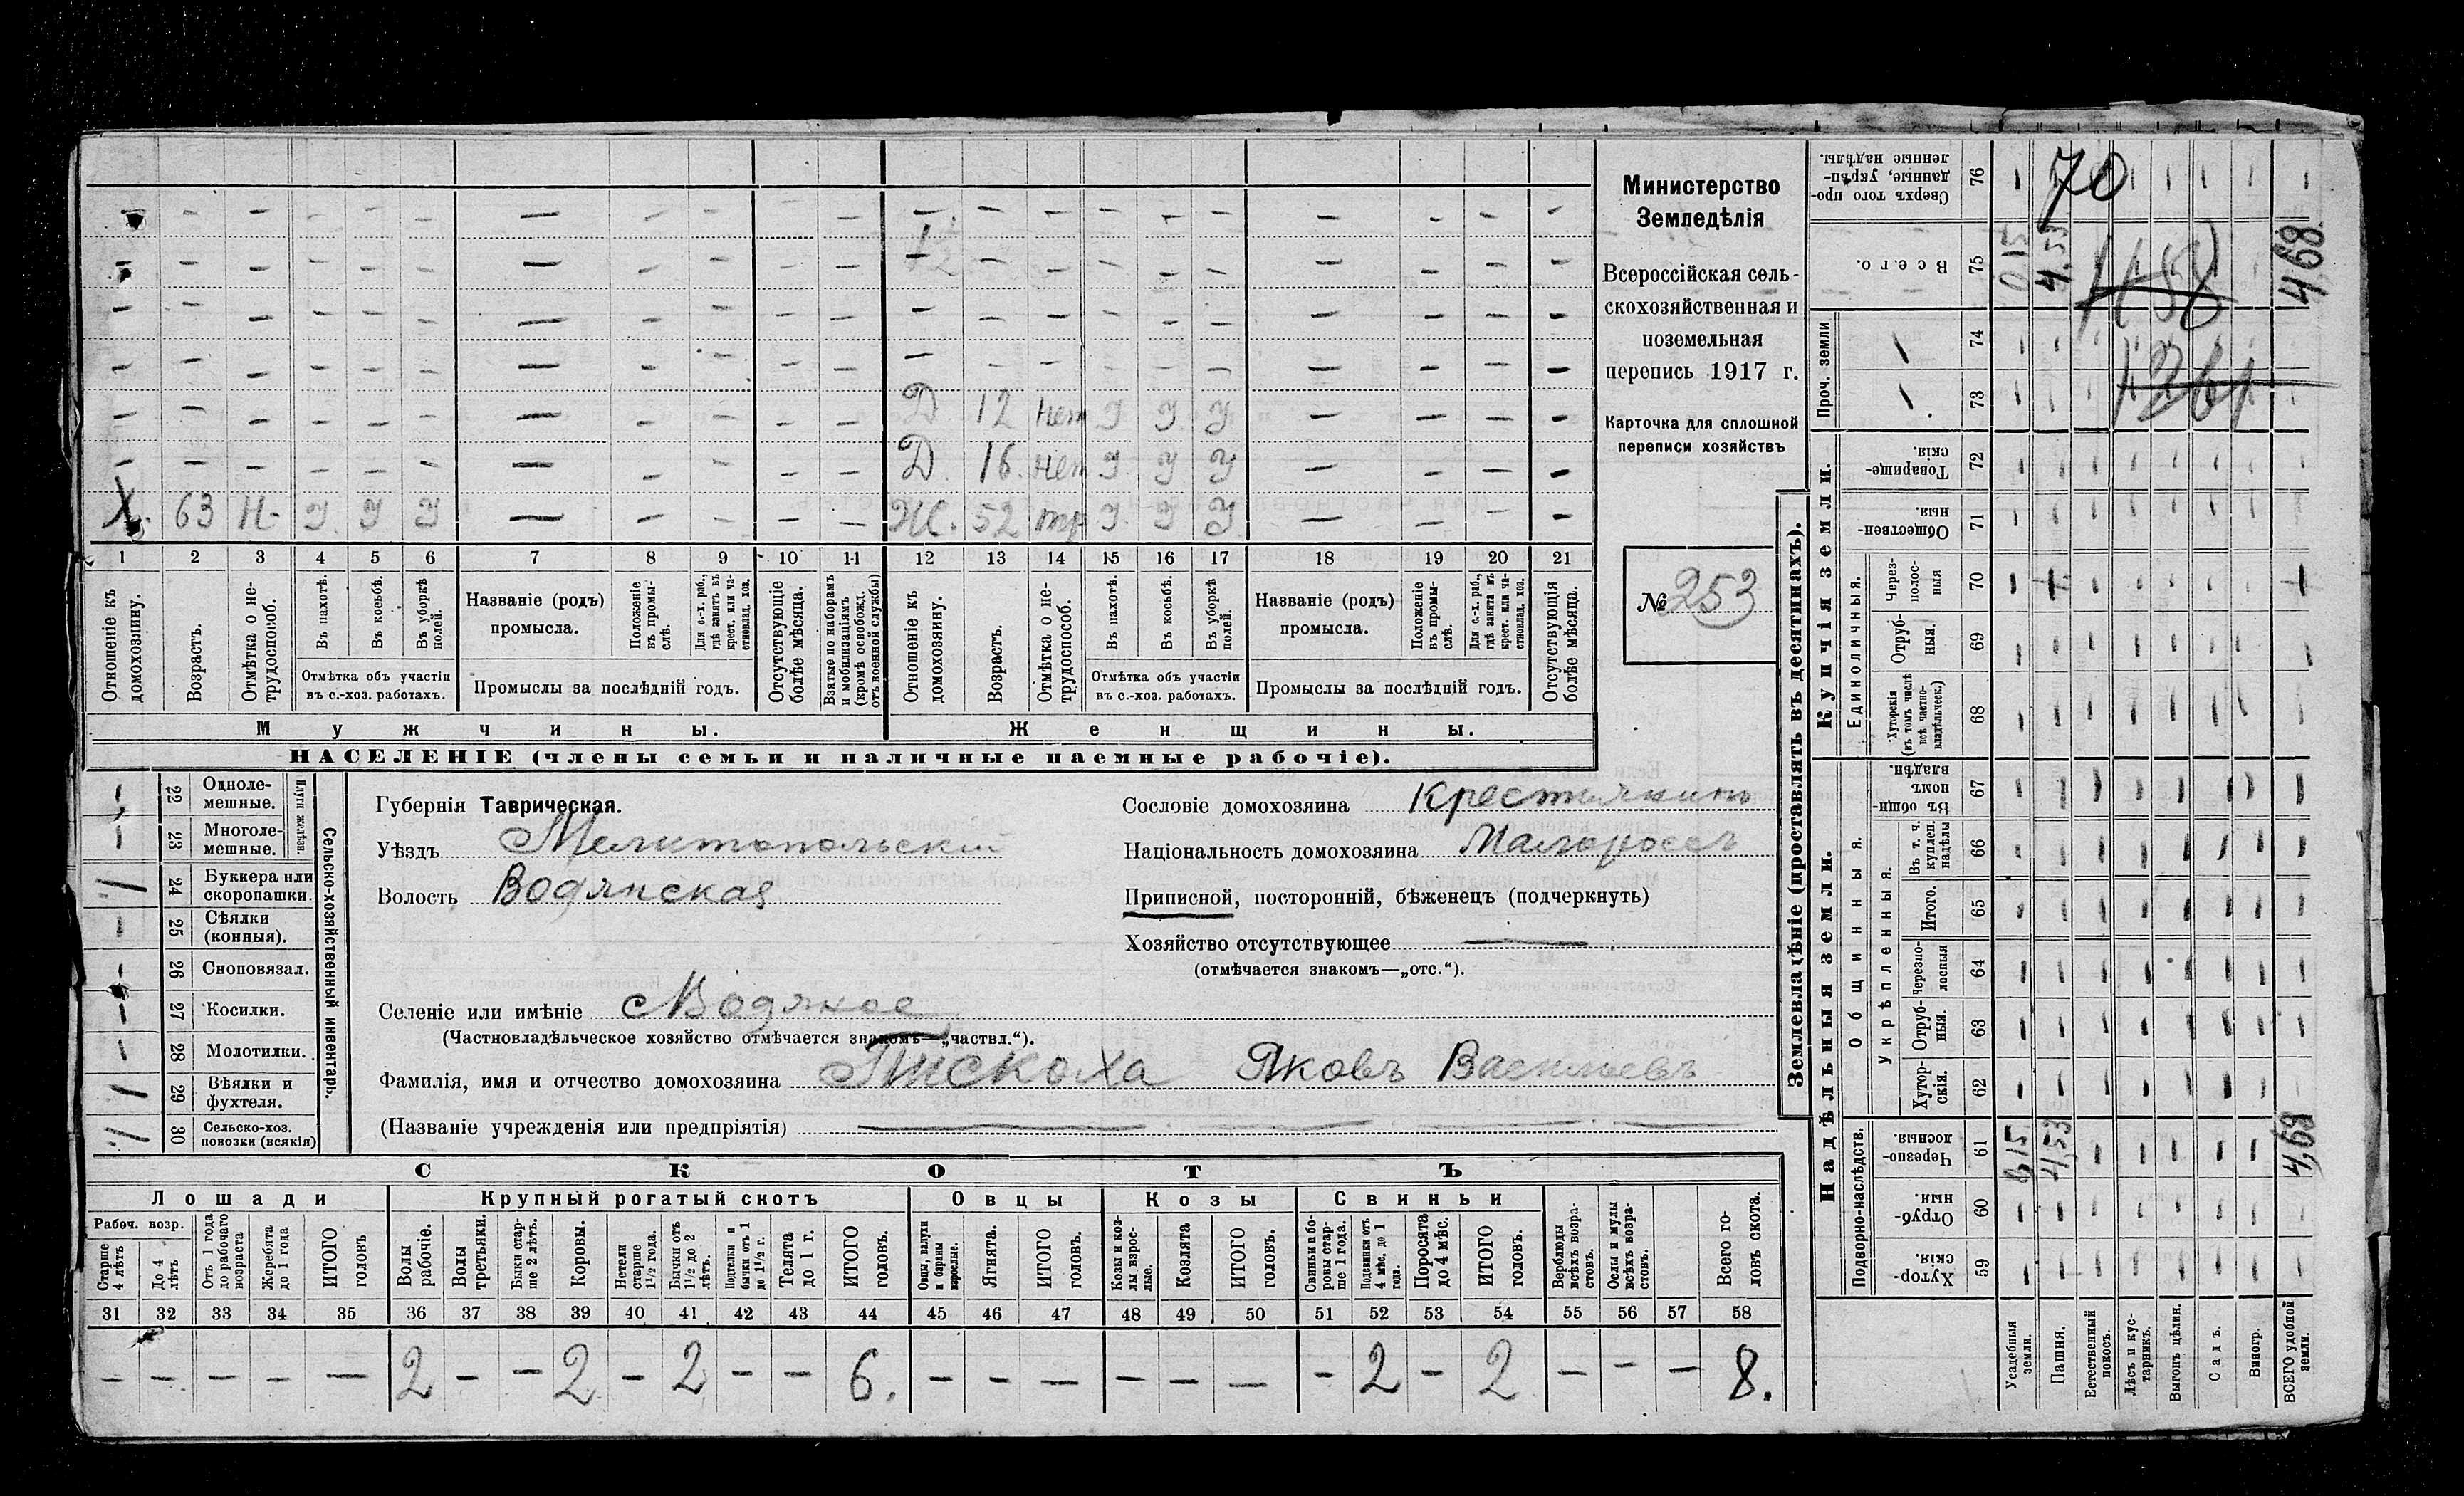 Министерство
Земледѣлія
Всероссійская сель-
скохозяйственная и
поземельная
перепись 1917 г.
Карточка для сплошной
переписи хозяйствъ
№ 253
Д. 12 нет У У У
Д. 16. нет У У У
Х. 63 Н. У У У — — — — — Ж. 52 тр У. У У — — — —
1 2 3 4 5 6 7 8 9 10 11 12 13 14 15 16 17 18 19 20 21
Отношеніе къ домохозяину.
Возрастъ.
Отмѣтка о не-трудоспособ.
Въ пахотѣ.
Въ косьбѣ.
Въ уборкѣ полей.
Отмѣтка объ участіи въ с.-хоз. работахъ.
Названіе (родъ) промысла.
Положеніе въ промы-слѣ.
Для с.-х. раб., гдѣ занятъ въ крест. или ча-стновлад. хоз.
Промыслы за послѣдній годъ.
Отсутствующіе болѣе мѣсяца.
Взятые по наборамъ и мобилизаціямъ (кромѣ освобожд. отъ военной службы)
Отношеніе къ домохозяину.
Возрастъ.
Отмѣтка о не-трудоспособ.
Въ пахотѣ.
Въ косьбѣ.
Въ уборкѣ полей.
Отмѣтка объ участіи въ с.-хоз. работахъ.
Названіе (родъ) промысла.
Положеніе въ промы-слѣ.
Для с.-х. раб., гдѣ занята въ крест. или ча-стновлад. хоз.
Промыслы за послѣдній годъ.
Отсутствующія болѣе мѣсяца.
Мужчины.
Женщины.
НАСЕЛЕНІЕ (члены семьи и наличные наемные рабочіе).
22 Одноле-мешные.
23 Многоле-мешные.
Плуги желѣзн.
24 Буккера или скоропашки.
25 Сѣялки (конныя).
26 Сноповязал.
27 Косилки.
28 Молотилки.
29 Вѣялки и фухтеля.
30 Сельско-хоз. повозки (всякія)
Сельско-хозяйственный инвентарь.
Губернія Таврическая.
Уѣздъ Мелитопольскій
Волость Водянская
Селеніе или имѣніе с Водяное
(Частновладѣльческое хозяйство отмѣчается знакомъ—„частвл.“).
Фамилія, имя и отчество домохозяина Пискоха Яковъ Васильевъ
(Названіе учрежденія или предпріятія)
Сословіе домохозяина Крестьянинъ
Національность домохозяина Малоросъ
Приписной, посторонній, бѣженецъ (подчеркнуть)
Хозяйство отсутствующее
(отмѣчается знакомъ—„отс.“).
СКОТЪ
Лошади Крупный рогатый скотъ Овцы Козы Свиньи
Рабоч. возр.
Старше 4 лѣтъ
До 4 лѣтъ
Отъ 1 года до рабочаго возраста
Жеребята до 1 года
ИТОГО головъ
Волы рабочіе.
Волы третьяки.
Быки стар-ше 2 лѣтъ.
Коровы.
Нетели старше 1½ года.
Бычки отъ 1½ до 2 лѣтъ.
Подтелки и бычки отъ 1 до 1½ г.
Телята до 1 г.
ИТОГО головъ.
Овцы, валухи и бараны взрослые.
Ягнята.
ИТОГО головъ.
Козы и коз-лы взрос-лые.
Козлята
ИТОГО головъ.
Свиньи и бо-ровы стар-ше 1 года.
Подсвинки отъ 4 мѣс. до 1 года.
Поросята до 4 мѣс.
ИТОГО головъ.
Верблюды всѣхъ возра-стовъ.
Ослы и мулы всѣхъ возра-стовъ.
Всего го-ловъ скота.
31 32 33 34 35 36 37 38 39 40 41 42 43 44 45 46 47 48 49 50 51 52 53 54 55 56 57 58
— — — — — 2 — — 2 — 2 — — 6. — — — — — — — 2 — 2 — — — 8.
Землевладѣніе (проставлять въ десятинахъ).
Сверхъ того про-данные, укрѣп-ленные надѣлы. 76
70
Всего. 75 0,15 4,53 4,68.
1158
Проч. земли 74 73
1261
Купчія земли.
Товарище-скія. 72
Обществен-ныя. 71
Единоличныя.
Через-полос-ныя 70
Отруб-ныя. 69
Хуторскія (въ томъ числѣ всѣ частно-владѣльческ.) 68
Надѣльныя земли.
Общинныя.
Въ общин-номъ владѣн. 67
Укрѣпленныя.
Въ т. ч. куплен. надѣлы 66
Итого. 65
Черезпо-лосныя 64
Отруб-ныя. 63
Хутор-скія. 62
Подворно-наслѣдств.
Черезпо-лосныя. 61 0,15 4,53 4,68
Отруб-ныя. 60
Хутор-скія. 59
Усадебныя земли.
Пашня.
Естественный покосъ.
Лѣсъ и кус-тарникъ.
Выгонъ цѣлин.
Садъ.
Виногр.
ВСЕГО удобной земли.